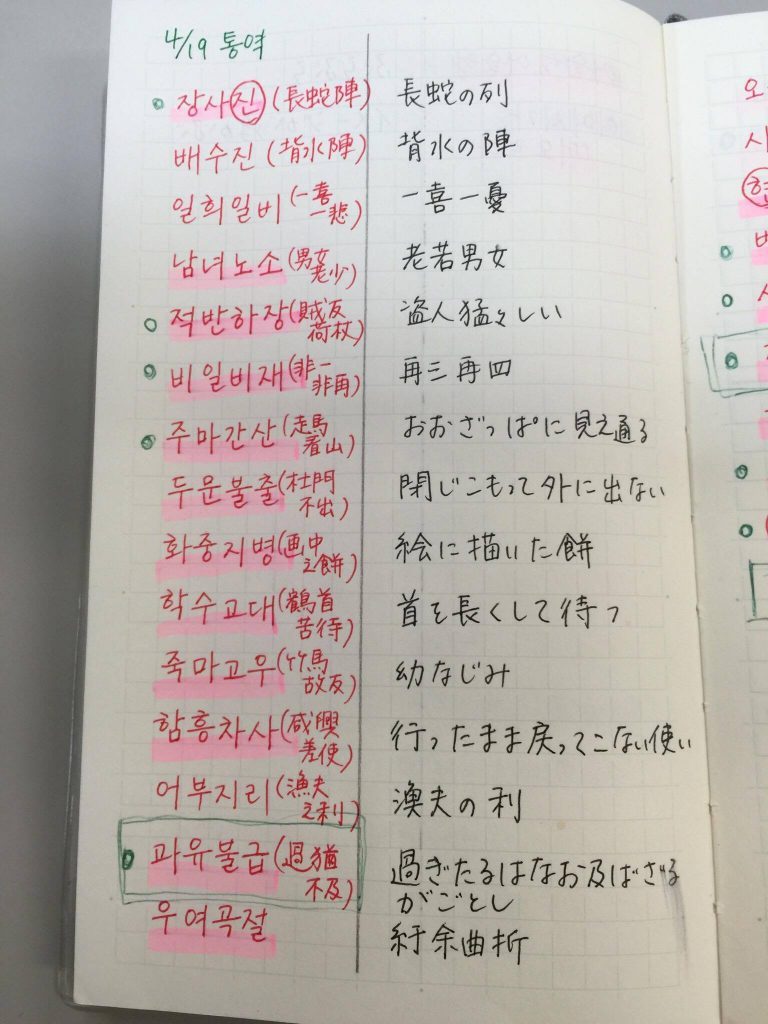 4/19 통역
장사진 (長蛇陣) 長蛇の列
배수진 (背水陣) 背水の陣
일희일비 (一喜一悲) 一喜一憂
남녀노소 (男女老少) 老若男女
적반하장 (賊反荷杖) 盗人猛々しい
비일비재 (非一非再) 再三再四
주마간산 (走馬看山) おおざっぱに見え通る
두문불출 (杜門不出) 閉じこもって外に出ない
화중지병 (画中之餅) 絵に描いた餅
학수고대 (鶴首苦待) 首を長くして待つ
죽마고우 (竹馬故友) 幼なじみ
함흥차사 (咸興差使) 行ったまま戻ってこない使い
어부지리 (漁夫之利) 漁夫の利
과유불급 (過猶不及) 過ぎたるはなお及ばざる
がごとし
우여곡절 紆余曲折
오
사
현